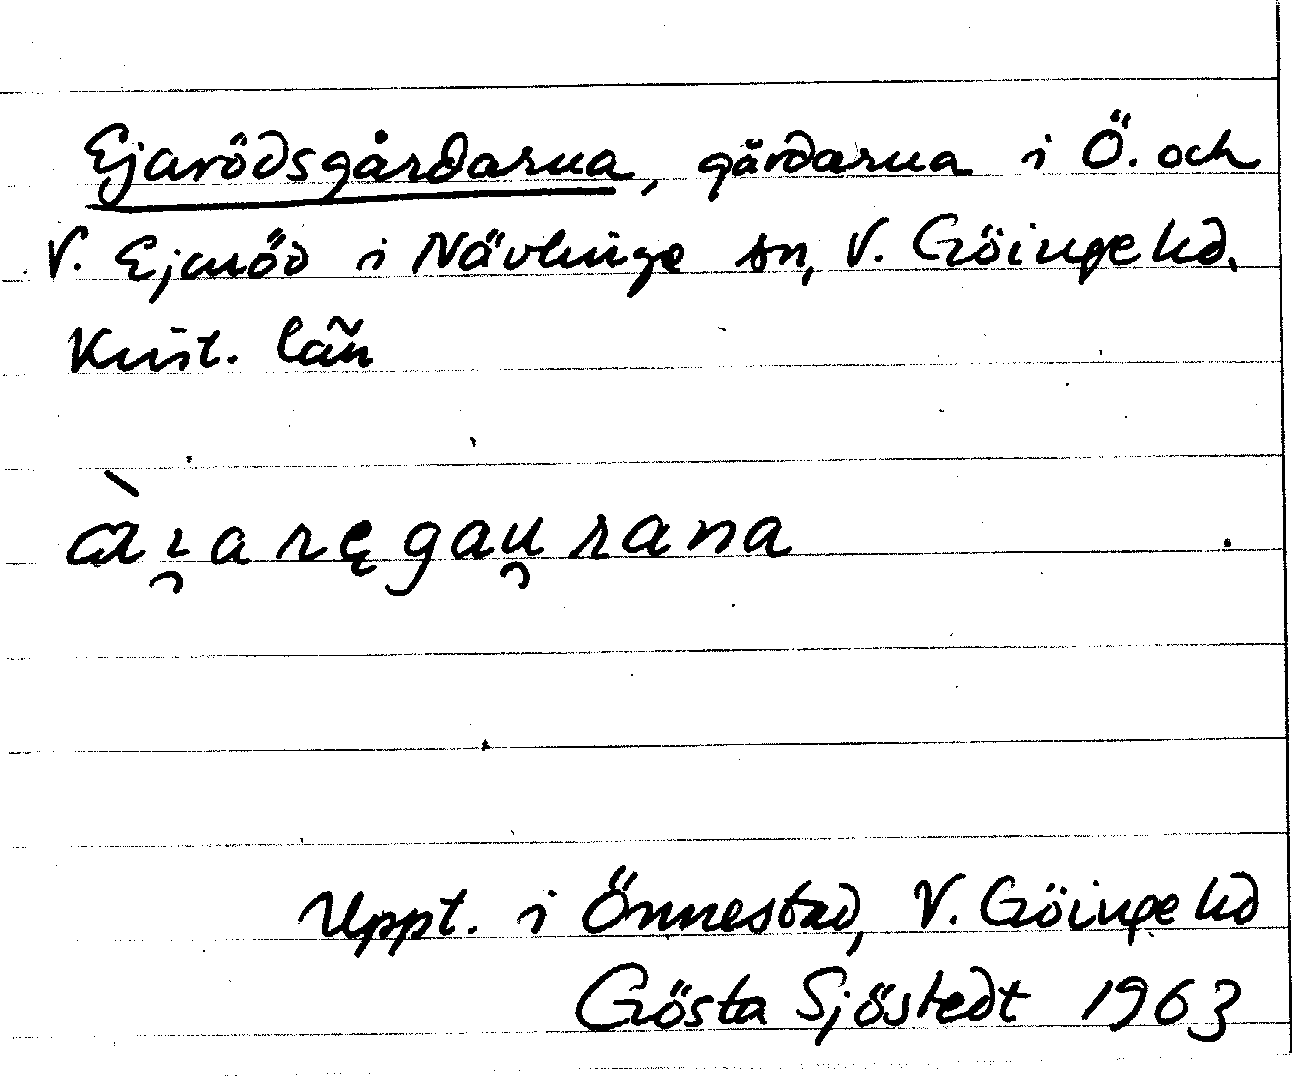 Ejarödsgårdarna, gårdarna i Ö. och
V. Ejaröd i Nävlinge sn, V. Göinge hd.
Krist. län
à̈ı̯aręgau̯rana
Uppt. i Önnestad, V. Göinge hd
Gösta Sjöstedt 1963